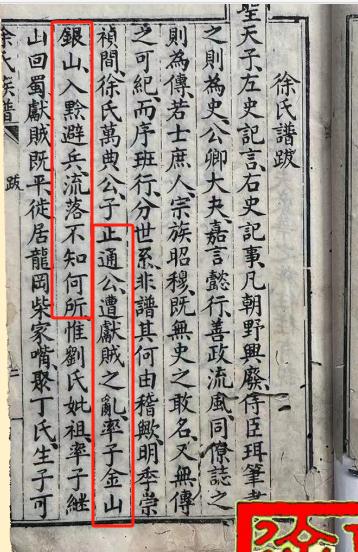 徐氏譜跋
聖天子左史記言右史記事凡朝野興廢侍臣珥筆書
之則為史公卿大夫嘉言懿行善政流風同僚誌之
則為傳若士庶人宗族昭穆既無史之敢名又無傳
之可紀而序班行分世系非譜其何由稽歟明季崇
禎間徐氏萬典公子正通公遭獻賊之亂率子金山
銀山入黔避兵流落不知何所惟劉氏妣祖率子繼
山回蜀獻賊既平徙居龍岡柴家嘴聚丁氏生子可
徐氏族譜
跋